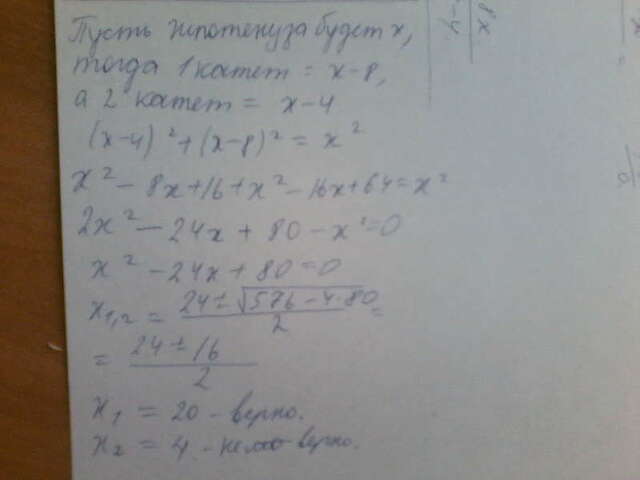 Пусть гипотенуза будет x,
тогда 1 катет = x-8,
а 2 катет = x-4
(x-4)² + (x-8)² = x²
x² - 8x + 16 + x² - 16x + 64 = x²
2x² - 24x + 80 - x² = 0
x² - 24x + 80 = 0
x₁,₂ = (24 ± √(576 - 4·80))/2 =
= (24 ± 16)/2
x₁ = 20 - верно.
x₂ = 4 - верно.
8x
-4